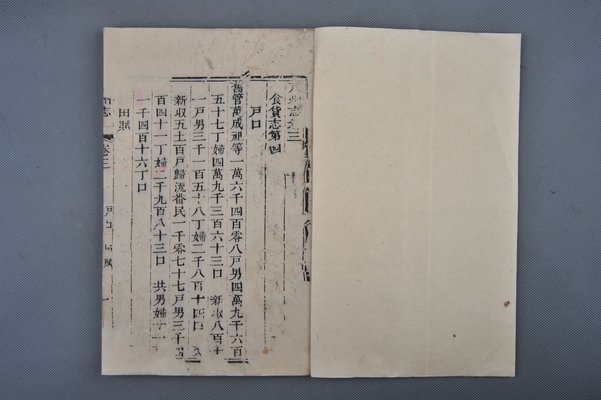 州志卷三
食貨志第四
戸口
舊管萬成祖等一萬六千四百零八戸男四萬九千六百
五十七丁婦四萬九千三百六十三口 新收八百十
一戸男三千一百五十八丁婦二千八百十四口 又
新收五土百戸歸流番民一千零七十七戸男三千四
百四十一丁婦二千九百八十三口 共男婦十一
一千四百十六丁口
田賦
志
卷三
戸口 田賦
一